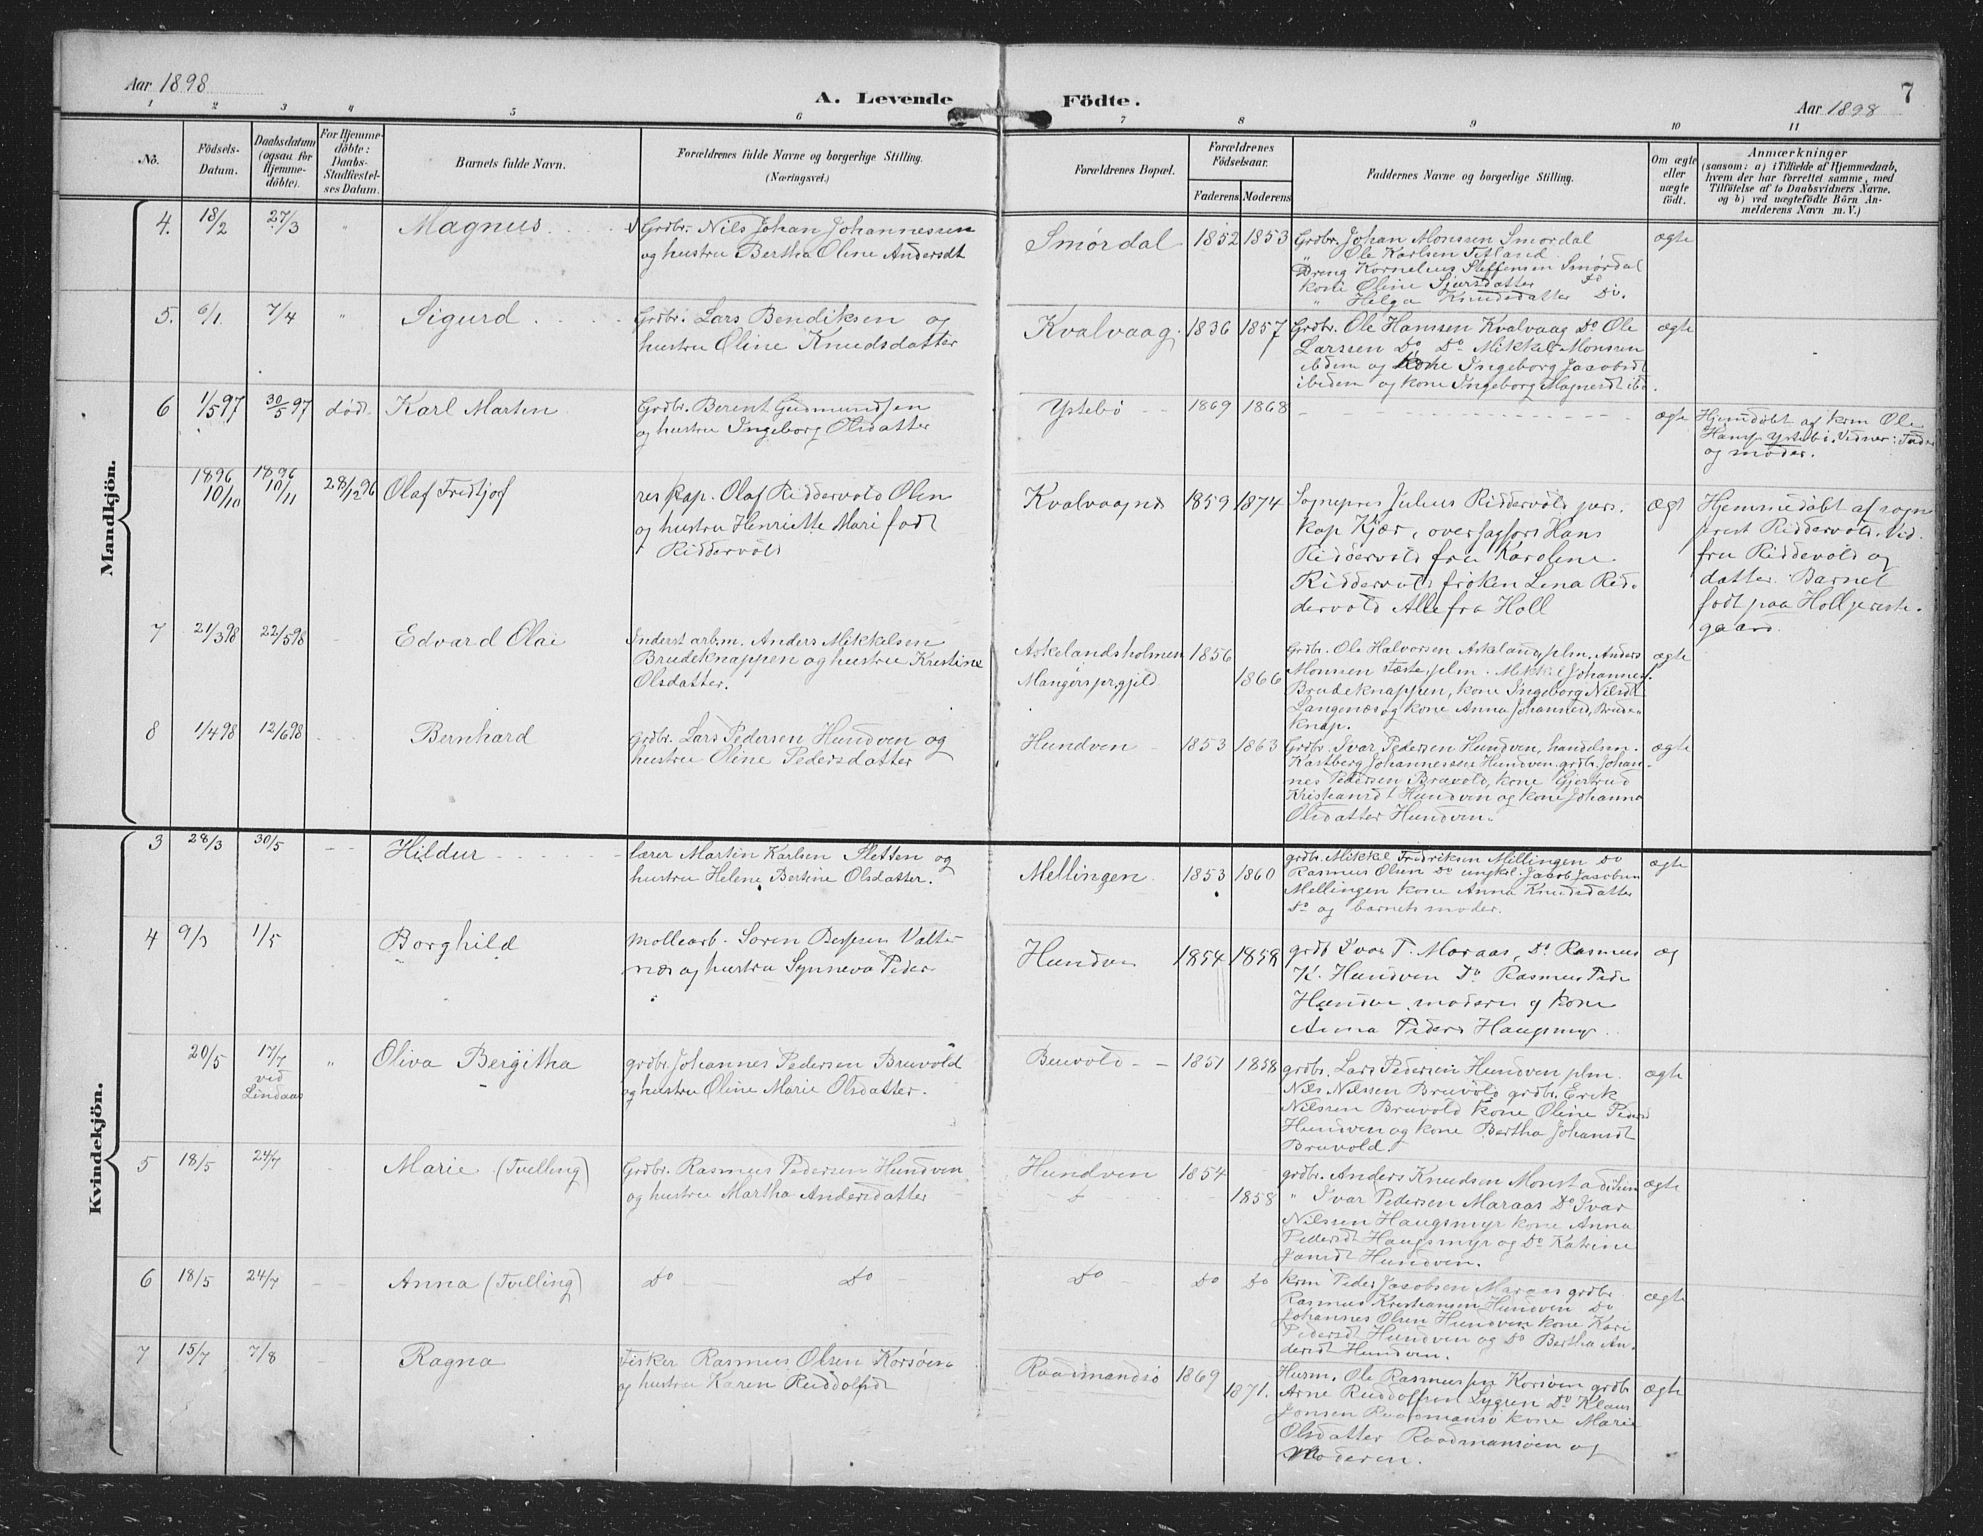 Aar 1898
A. Levende Födte.
Aar 1898
7
1 2 3 4 5 6 7 8 9 10 11
No.
Födsels-
Datum.
Daabsdatum
(ogsaa for
Hjemme-
döbte).
For Hjemme-
döbte:
Daabs-
Stadfæstel-
ses Datum.
Barnets fulde Navn.
Forældrenes fulde Navne og borgerlige Stilling.
(Næringsvei.)
Forældrenes Bopæl.
Forældrenes
Födselsaar.
Faderens Moderens
Faddernes Navne og borgerlige Stilling.
Om ægte
eller
uægte
födt.
Anmærkninger
(saasom: a) i Tilfælde af Hjemmedaab,
hvem der har forrettet samme, med
Tilföielse af to Daabsvidners Navne,
og b) ved uægtefödte Börn An-
melderens Navn m. V.)
Mandkjön.
4. 18/2 27/3 " Magnus
Grdbr. Nils Johan Johannessen
og hustru Bertha Oline Andersdt
Smørdal 1852 1853
Grdbr. Johan Monssen Smørdal
" Ole Karlsen Fetland
Dreng Kornelius Steffensen Smørdal
kone Oline Sjursdatter Do
" Helga Knudsdatter Do.
ægte
5. 6/1 7/4 " Sigurd
Grdbr. Lars Bendiksen og
hustru Oline Knudsdatter
Kvalvaag 1836 1857
Grdbr. Ole Hanssen Kvalvaag Do Ole
Larssen Do Do Mikkel Monssen
ibidem og kone Ingeborg Jacobsdt
ibidem og kone Ingeborg Magnesdt ibd.
ægte
6 1/5 97 30/5 97 død. Karl Martin
Grdbr. Berent Gudmundsen
og hustru Ingeborg Olsdatter
Ystebø 1869 1868
ægte
Hjemdøbt af krm Ole
Hans. Ystebø. Vidner: Fader
og moder.
1896 10/10 1896 10/11 28/12 96 Olaf Fredtjof
res kap. Olaf Riddervold Olen
og hustru Henriette Mari født
Riddervold
Kvalvaagnes 1859 1874
Sognepres Julius Riddervold pers.
kap Kjær, oversagførs Hans
Riddervold fru Karoline
Riddervold frøken Lena Rid-
dervold Alle fra Holl
ægt
Hjemmedøbt af sogne
prest Riddervold. Vid.
fru Riddevold og
datter. Barnet
født paa Holl preste-
gaard.
7 21/3 98 22/5 98 Edvard Olai
Inderst arbm. Anders Mikkelsen
Brudeknappen og hustru Kristine
Olsdatter.
Askelandsholmen
Mangers prgjeld
1856 1866
Grdbr. Ole Halvorsen Askeland, plm. Anders
Monsen Tæste, plm. Mikkel Johannes.
Brudeknappen, kone Ingeborg Nilsdt
Langenæs og kone Anna Johannesd, Brude-
knap.
ægte
8 1/4 98 12/6 98 Bernhard
Grdbr. Lars Pedersen Hundven og
hustru Oline Pedersdatter
Hundven 1853 1863
Grdbr. Ivar Pedersen Hundven, handelsm.
Kastberg Johannessen Hundven. grdbr. Johan-
nes Pedersen Bruvold, kone Gjertrud
Kristiansdt Hundven og kone Johanna
Olsdatter Hundven.
ægte
Kvindekjön.
3 28/3 30/5 Hildur
lærer Martin Karlsen Sletten og
hustru Helene Bertine Olsdatter.
Mellingen 1853 1860
grdbr. Mikkel Fredriksen Mellingen Do
Rasmus Olsen Do ungkl. Jacob Jacobsen
Mellingen kone Anna Knudsdatter
Do og barnets moder.
ægte
4 9/3 1/5 Borghild
møllearb. Søren Bessesen Valter
næs og hustru Synneva Peder
Hundven 1854 1858
grdb Ivar P. Maraas, Do Rasmus
K. Hundven Do Rasmus Pede
Hundve moderen og kone
Anna Peders Haugsmyr
æg
20/5 17/7 ved Lindaas " Oliva Bergitha
grdbr. Johannes Pedersen Bruvold
og hustru Oline Marie Olsdatter.
Bruvold 1851 1858
grdbr. Lars Pedersen Hundven plm.
Nils Nilssen Bruvold grdbr. Erik
Nilssen Bruvold kone Oline Pedersd
Hundven og kone Bertha Johansdt
Bruvold.
ægte
5 18/5 24/7 Marie (Tvilling)
Grdbr. Rasmus Pedersen Hundven
og hustru Martha Andersdatter
Hundven 1854 1858
grdbr. Anders Knudsen Monstad
" Ivar Pedersen Maraas Do Ivar
Nilssen Haugsmyr kone Anna
Pedersdt Haugsmyr og Do Katrine
Jansdt Hundven.
ægte
6 18/5 24/7 Anna (Tvilling)
Do Do Do Do Do
krm Peder Jacobsen Maraas grdbr.
Rasmus Kristiansen Hundven Do
Johannes Olsen Hundven kone Kari
Pedersdt Hundven og Do Bertha An-
dersdt Hundven.
ægte
7 15/7 7/8 Ragna
Fisker Rasmus Olsen Korsøen
og hustru Karen Ruddolfsdt
Raadmandsø 1869 1871.
Husm. Ole Rasmussen Korsøen grdbr
Arne Ruddolfsen Lygren Do Klaus
Jonsen Raadmansø kone Marie
Olsdatter Raadmansøen og
Moderen.
ægte